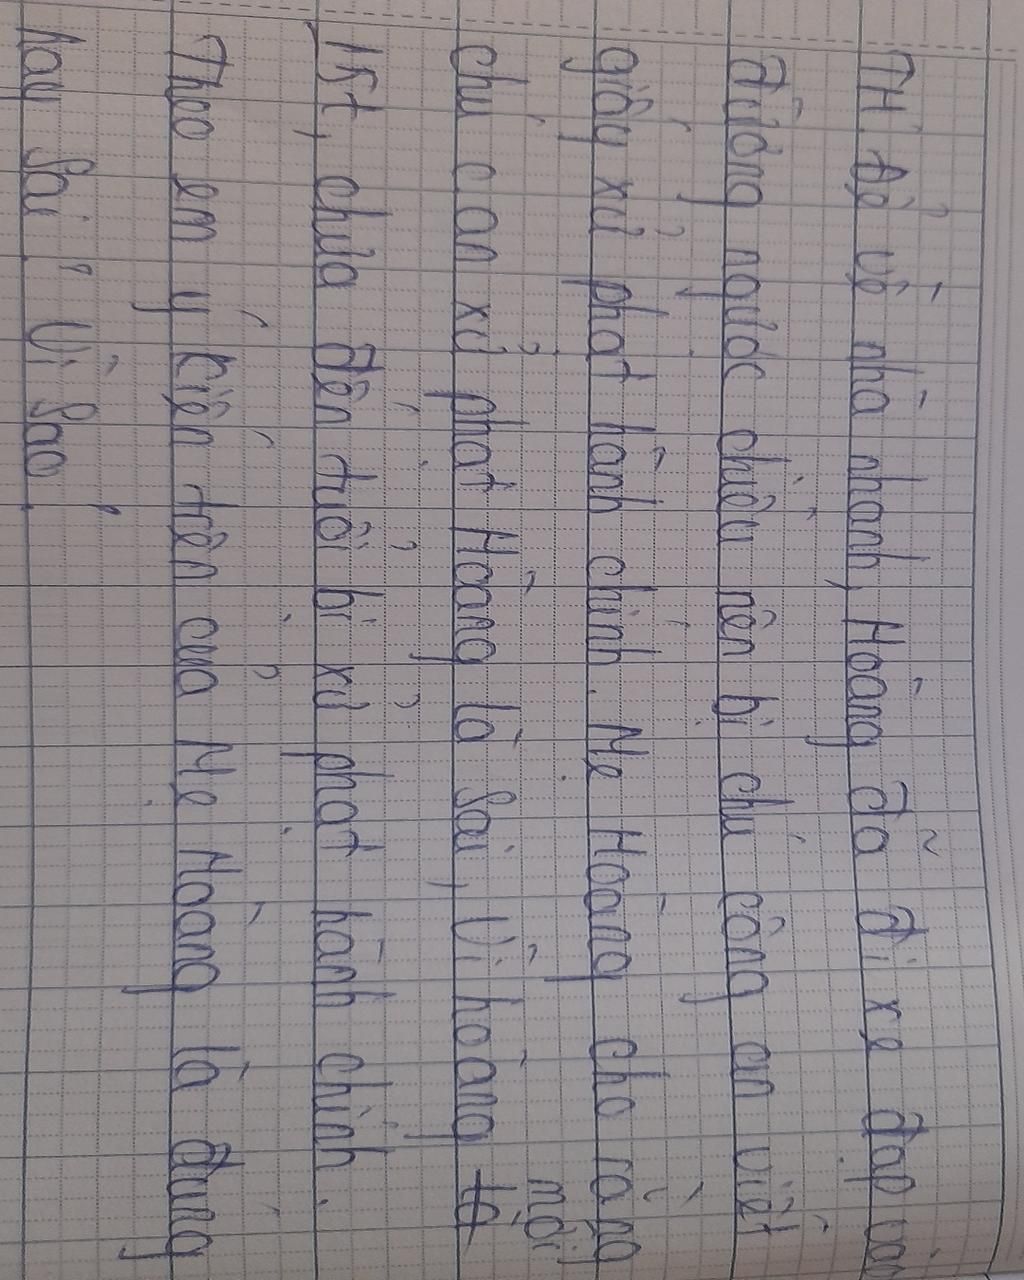 TH: Để về nhà nhanh, Hoàng đã đi xe đạp vào
đường ngược chiều nên bị chú công an viết
giấy xử phạt hành chính. Mẹ Hoàng cho rằng
chú can xử phạt Hoàng là sai, Vì hoàng mới
15t, chưa đến tuổi bị xử phạt hành chính.
Theo em ý kiến trên của Mẹ Hoàng là đúng
hay sai? Vì sao?